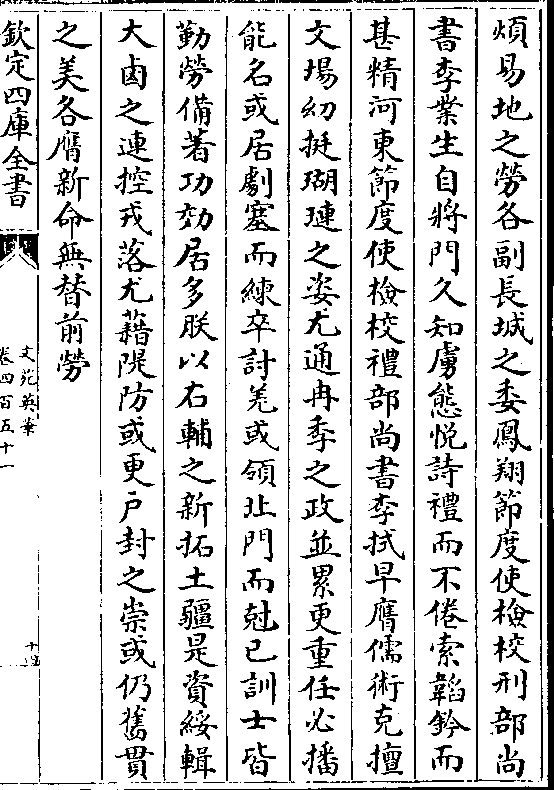 煩易地之勞各副長城之委鳳翔節度使檢校刑部尚
書李業生自將門久知虜態悅詩禮而不倦索韜鈐而
甚精河東節度使檢校禮部尚書李拭早膺儒術克擅
文場幼挺瑚璉之姿尤通冉季之政並累更重任必播
能名或居劇塞而練卒討羌或領北門而尅己訓士皆
勤勞備著功効居多朕以右輔之新拓土疆是資綏輯
大鹵之連控戎落尤藉隄防或更戶封之崇或仍舊貫
之美各膺新命無替前勞
欽定四庫全書
文苑英華
卷四百五十一